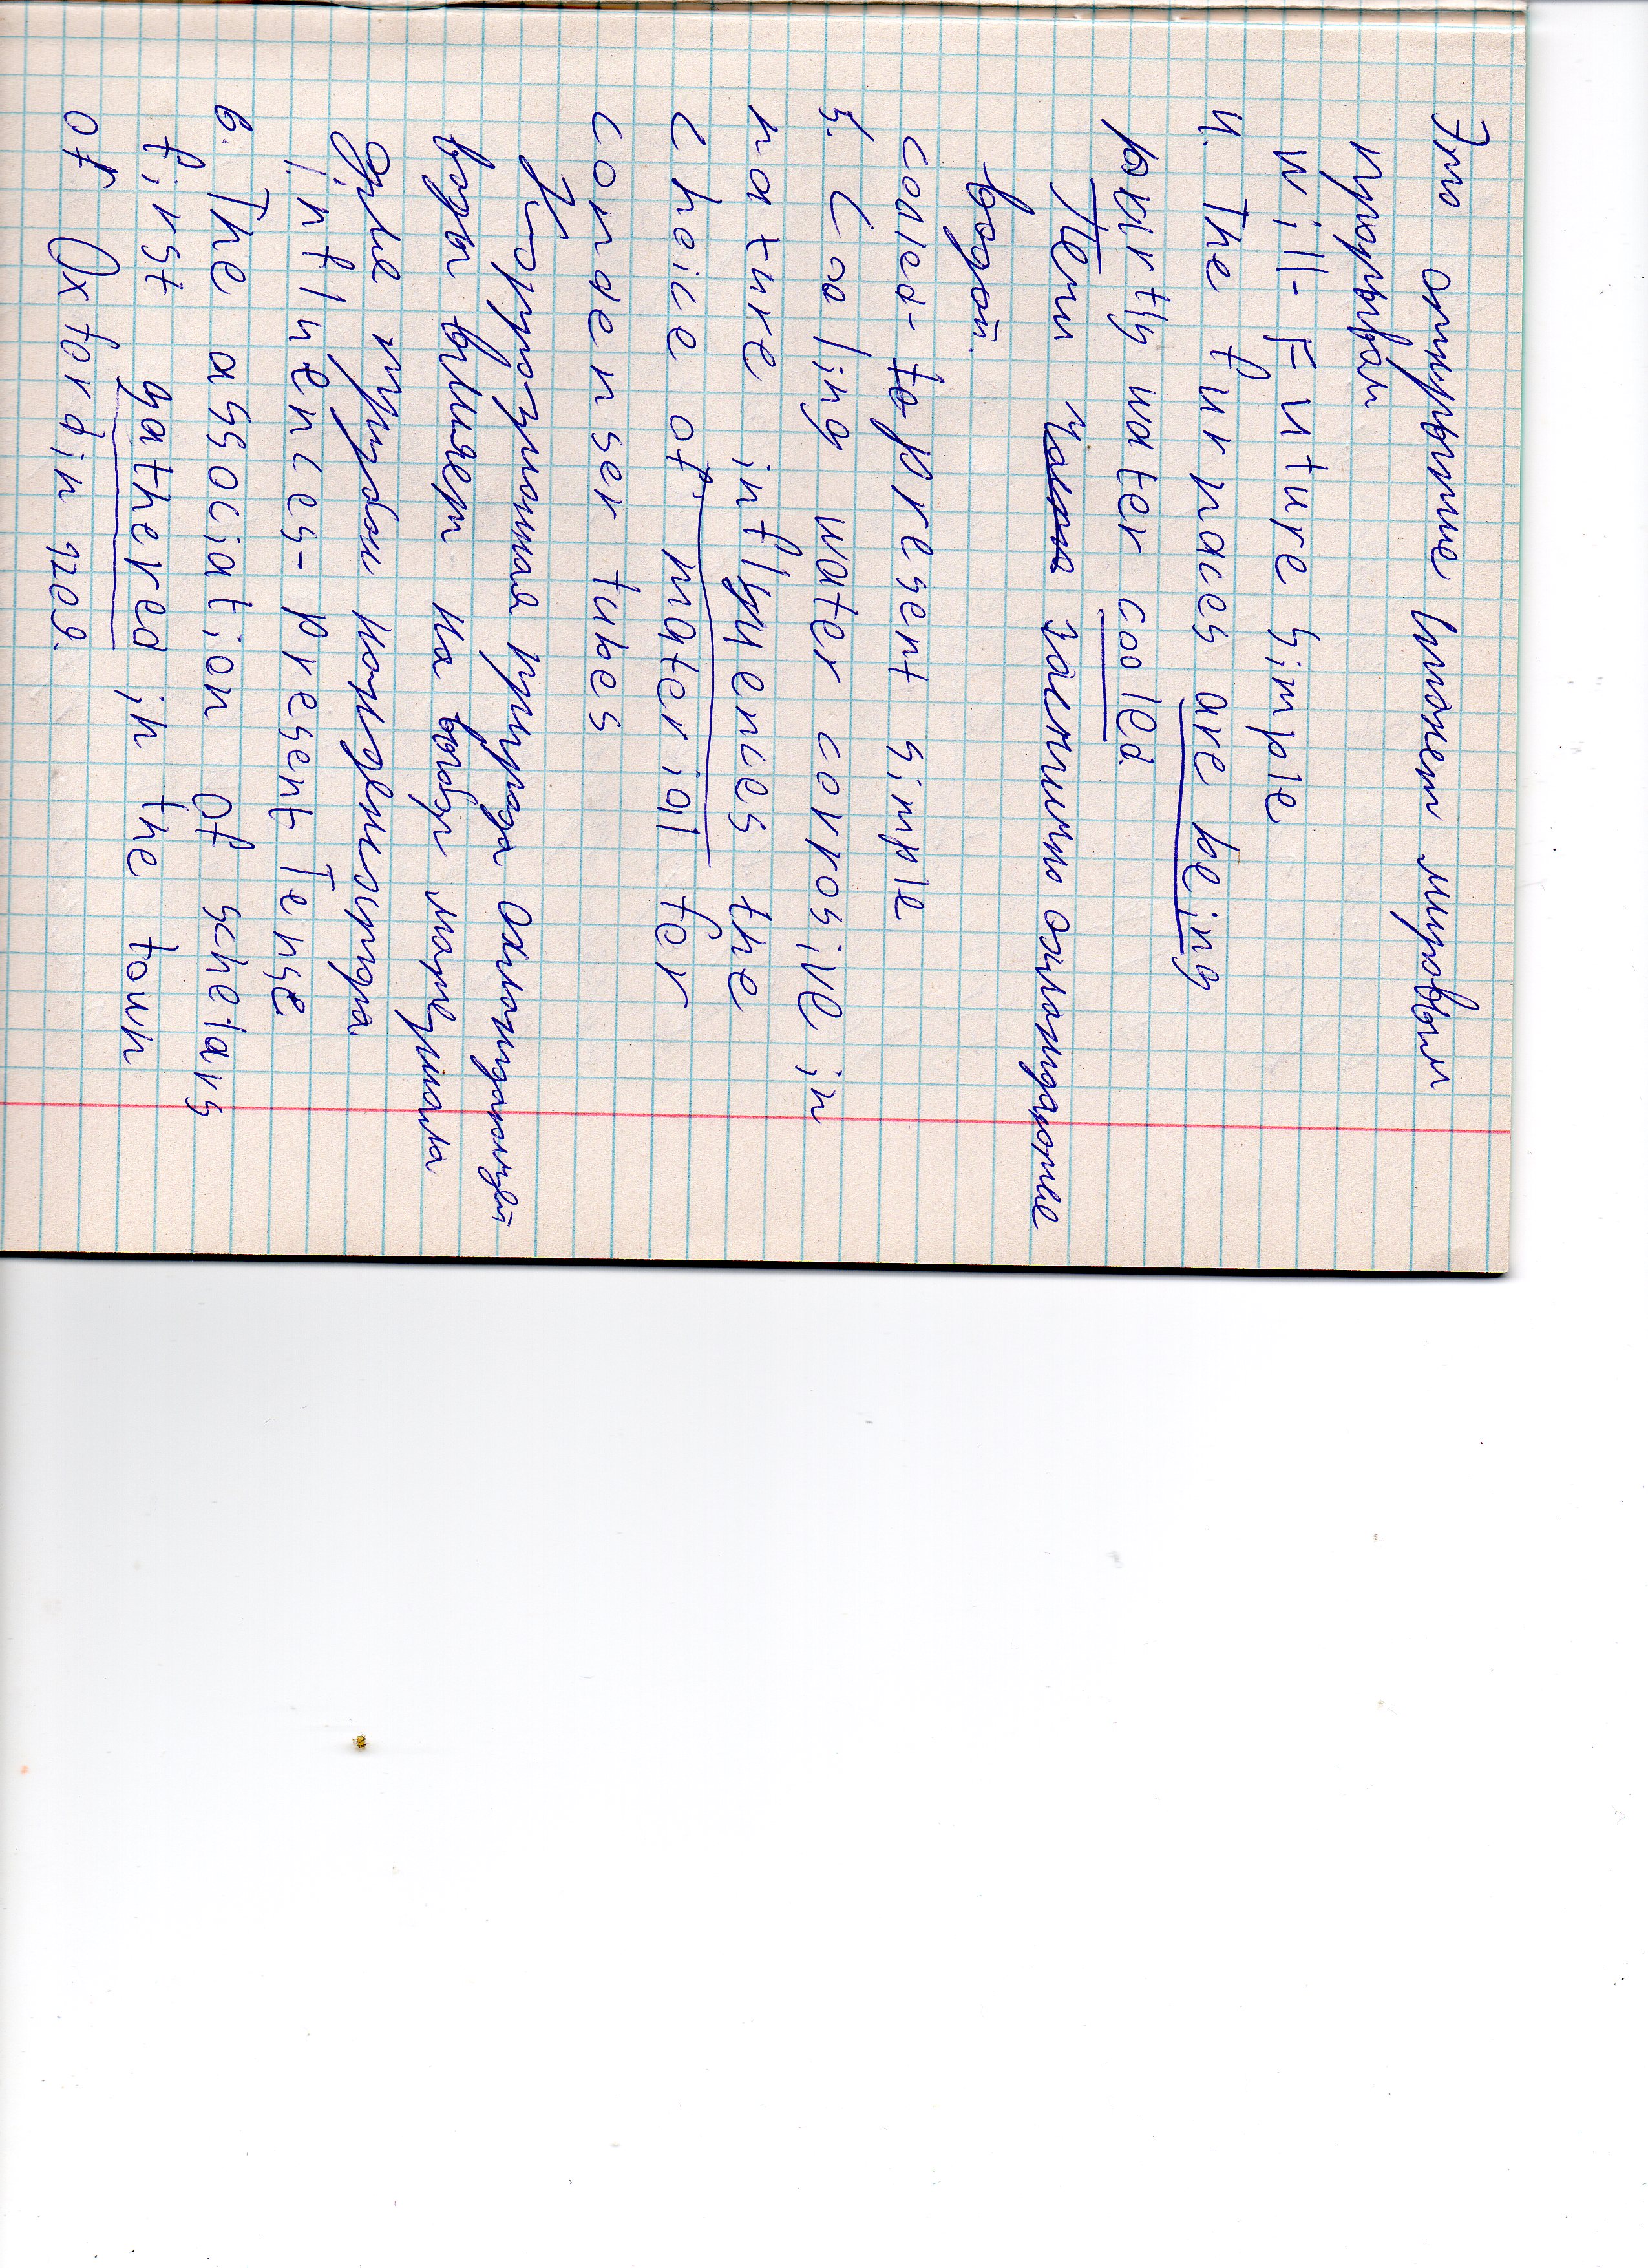 Это открытие внонет мировым
прорывам
Will- Future simple
4. The furnaces are being
partly water cooled.
Печи частично охлаждаюние
водой.
cooled- to present simple
5. Cooling water corrosive in
nature inflyuences the
cheice of material for
condenser tubes
Коррозионная природа охлаждающей
воды влияет на выбор материала
для трубок конденсатора.
influences- present Tense
6. The association of schelars
first gathered in the town
of Oxford in